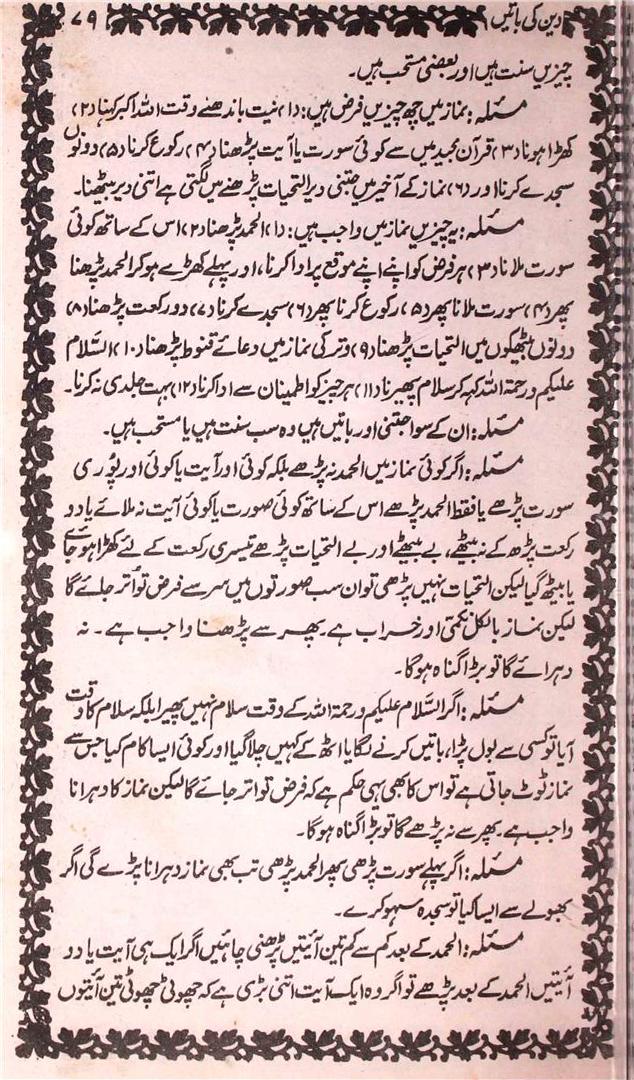 دین کی باتیں ۷۹
چیزیں سنت ہیں اور بعضی مستحب ہیں۔
مسئلہ: نماز میں چھ چیزیں فرض ہیں: (۱) نیت باندھتے وقت اللہ اکبر کہنا (۲)
کھڑا ہونا (۳) قرآن مجید میں سے کوئی سورت یا آیت پڑھنا (۴) رکوع کرنا (۵) دونوں
سجدے کرنا اور (۶) نماز کے آخیر میں جتنی دیر التحیات پڑھنے میں لگتی ہے اتنی دیر بیٹھنا۔
مسئلہ: یہ چیزیں نماز میں واجب ہیں: (۱) الحمد پڑھنا (۲) اس کے ساتھ کوئی
سورت ملانا (۳) ہر فرض کو اپنے اپنے موقع پر ادا کرنا، اور پہلے کھڑے ہو کر الحمد پڑھنا
پھر (۴) سورت ملانا پھر (۵) رکوع کرنا پھر (۶) سجدے کرنا (۷) دو رکعت پڑھنا (۸)
دونوں بیٹھکوں میں التحیات پڑھنا (۹) وتر کی نماز میں دعائے قنوط پڑھنا (۱۰) السَّلام
علیکم ورحمۃ اللہ کہہ کر سلام پھیرنا (۱۱) ہر چیز کو اطمینان سے ادا کرنا (۱۲) بہت جلدی نہ کرنا۔
مسئلہ: ان کے سوا جتنی اور باتیں ہیں وہ سب سنت ہیں یا مستحب ہیں۔
مسئلہ: اگر کوئی نماز میں الحمد نہ پڑھے بلکہ کوئی اور آیت یا کوئی اور پُوری
سورت پڑھے یا فقط الحمد پڑھے اس کے ساتھ کوئی صورت یا کوئی آیت نہ ملائے یا دو
رکعت پڑھ کے نہ بیٹھے، بے بیٹھے اور بے التحیات پڑھے تیسری رکعت کے لئے کھڑا ہو جائے
یا بیٹھ گیا لیکن التحیات نہیں پڑھی تو ان سب صورتوں میں سر سے فرض تو اُتر جائے گا
لیکن نماز بالکل نکمّی اور خراب ہے۔ پھر سے پڑھنا واجب ہے۔ نہ
دہرائے گا تو بڑا گناہ ہوگا۔
مسئلہ: اگر السَّلام علیکم ورحمۃ اللہ کے وقت سلام نہیں پھیرا بلکہ سلام کا وقت
آیا تو کسی سے بول پڑا، باتیں کرنے لگا یا اٹھ کے کہیں چلا گیا اور کوئی ایسا کام کیا جس سے
نماز ٹوٹ جاتی ہے تو اس کا بھی یہی حکم ہے کہ فرض تو اتر جائے گا لیکن نماز کا دہرانا
واجب ہے۔ پھر سے نہ پڑھے گا تو بڑا گناہ ہوگا۔
مسئلہ: اگر پہلے سورت پڑھی پھر الحمد پڑھی تب بھی نماز دہرانا پڑے گی اگر
بھولے سے ایسا کیا تو سجدہ سہو کرے۔
مسئلہ: الحمد کے بعد کم سے کم تین آئیتیں پڑھنی چاہئیں اگر ایک ہی آیت یا دو
آئیتیں الحمد کے بعد پڑھے تو اگر وہ ایک آیت اتنی بڑی ہے کہ چھوٹی چھوٹی تین آئیتوں